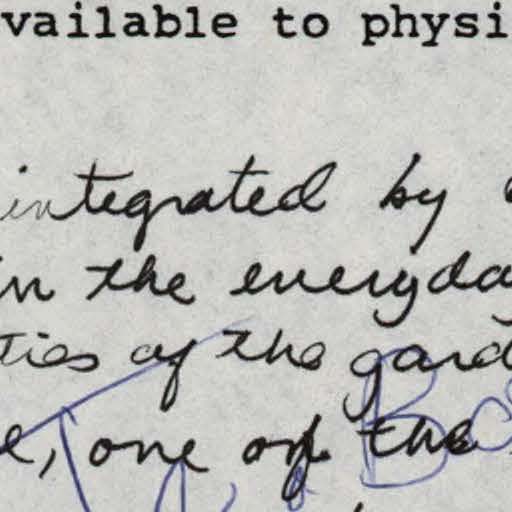 vailable to physi
integrated by
in the everyda
ties of the gard
e, one of the